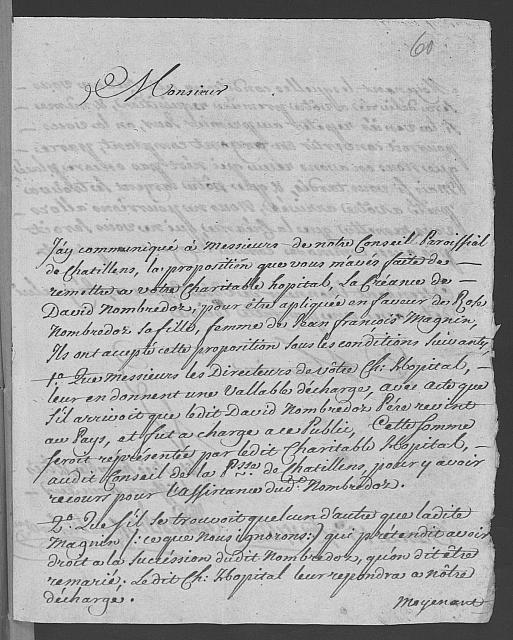 60
Monsieur
J'ay communiqué à Messieurs de nôtre Conseil Paroissial
de Chatillens, la proposition que vous m'avés faite de
remettre a vôtre Charitable hopital, La Créance de
David Nombredoz, pour être appliquée en faveur de Rose
Nombredoz sa fille, femme de Jean françois Magnin,
Ils ont accepté cette proposition sous les conditions suivantes,
1.o Que messieurs les Directeurs de vôtre Ch: Hopital,
leur en donnent une Vallable décharge, avec acte que
s'il arrivoit que ledit David Nombredoz Pére revint
au Pays, et fut a charge a ce Public, Cette somme
seroit représentée par ledit Charitable Hopital,
audit Conseil de la P.sse de Chatillens, pour y avoir
recours pour l'assistance dud: Nombredoz.
2.o Que s'il se trouvoit quelcun d'autre que ladite
Magnin /: ce que Nous ignorons :/ qui prétendit avoir
droit a la succéssion dudit Nombredoz, qu'on dit être
remarié; Le dit Ch: Hopital leur repondra a nôtre
décharge.
Moyenant